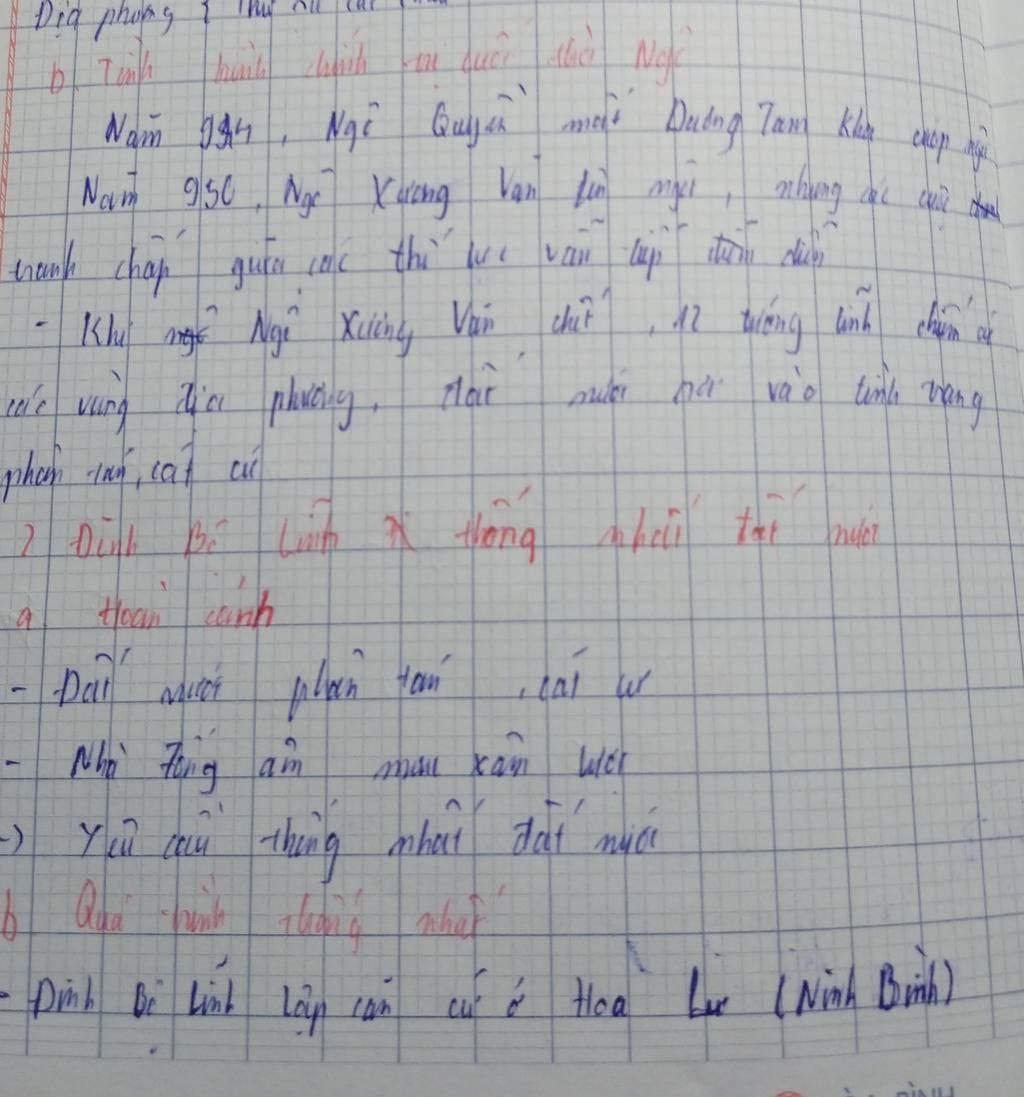 Địa phương
b. Tình hình chính trị cuối thời Ngô
Năm 944, Ngô Quyền mất Dương Tam Kha cướp ngôi
Năm 950, Ngô Xương Văn lên ngôi, nhưng các cuộc
tranh chấp giữa các thế lực vẫn tiếp tục diễn
- Khi Ngô Xương Văn chết, 12 tướng lĩnh chiếm cứ
các vùng địa phương, đất nước rơi vào tình trạng
phân tán, cát cứ
2 Đinh Bộ Lĩnh thống nhất đất nước
a. Hoàn cảnh
- Đất nước phân tán, cát cứ
- Nhà Tống âm mưu xâm lược
-) Yêu cầu thống nhất đất nước
b Quá trình thống nhất
- Đinh Bộ Lĩnh lập căn cứ ở Hoa Lư (Ninh Bình)